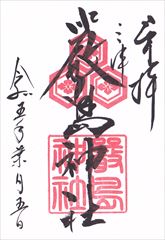 奉拝
三津
嚴島神社
嚴島
神社
令和五年葉月五日